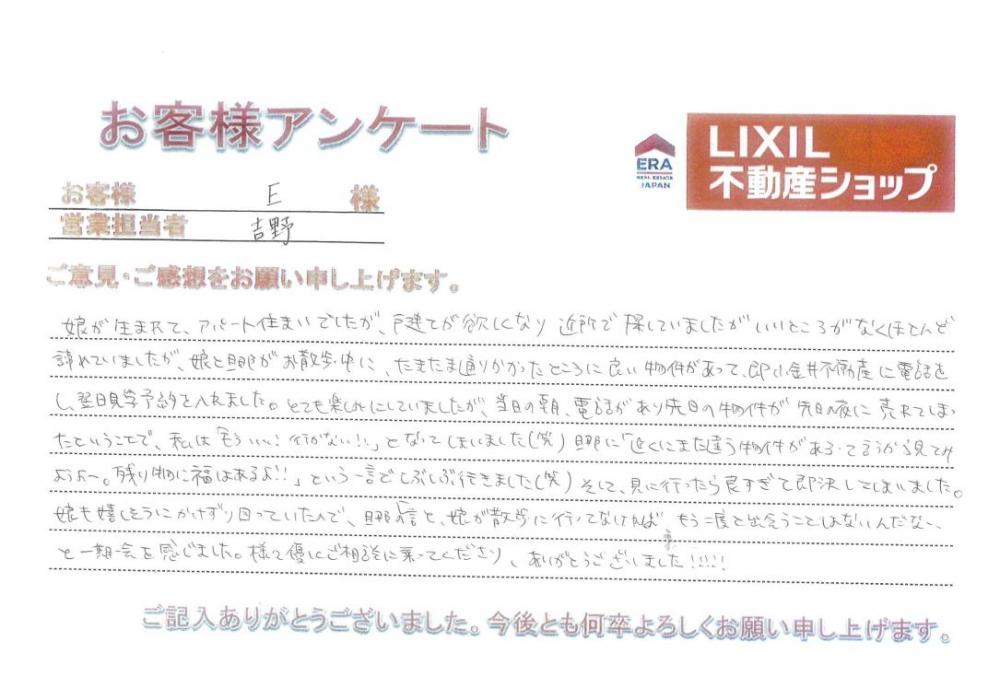 お客様アンケート
ERA
REAL ESTATE
JAPAN
LIXIL
不動産ショップ
お客様 E 様
営業担当者 吉野
ご意見・ご感想をお願い申し上げます。
娘が生まれて、アパート住まいでしたが、戸建てが欲しくなり 近所で探していましたがいいところがなくほとんど
諦めていましたが、娘と旦那がお散歩中に、たまたま通りかかったところに良い物件があって、即小金井不動産に電話を
し、翌日見学予約を入れました。とても楽しみにしていましたが、当日の朝、電話があり先日の物件が 先日の夜に 売れてしまっ
たということで、私は「もういい!行かない!!」となってしまいました(笑) 旦那に「近くにまた違う物件がある
ようよ〜。残り物に福はあるよ!!」という一言でしぶしぶ行きました(笑) そして、見に行ったら良すぎて即決してしまいました。
娘も嬉しそうにかけずり回っていたので、旦那の一言と、娘が散歩に行ってなければ もう二度と出会うことはないんだな〜、
と一期一会を感じました。様々優しくご相談に乗ってくださり、ありがとうございました!!!!
ご記入ありがとうございました。今後とも何卒よろしくお願い申し上げます。